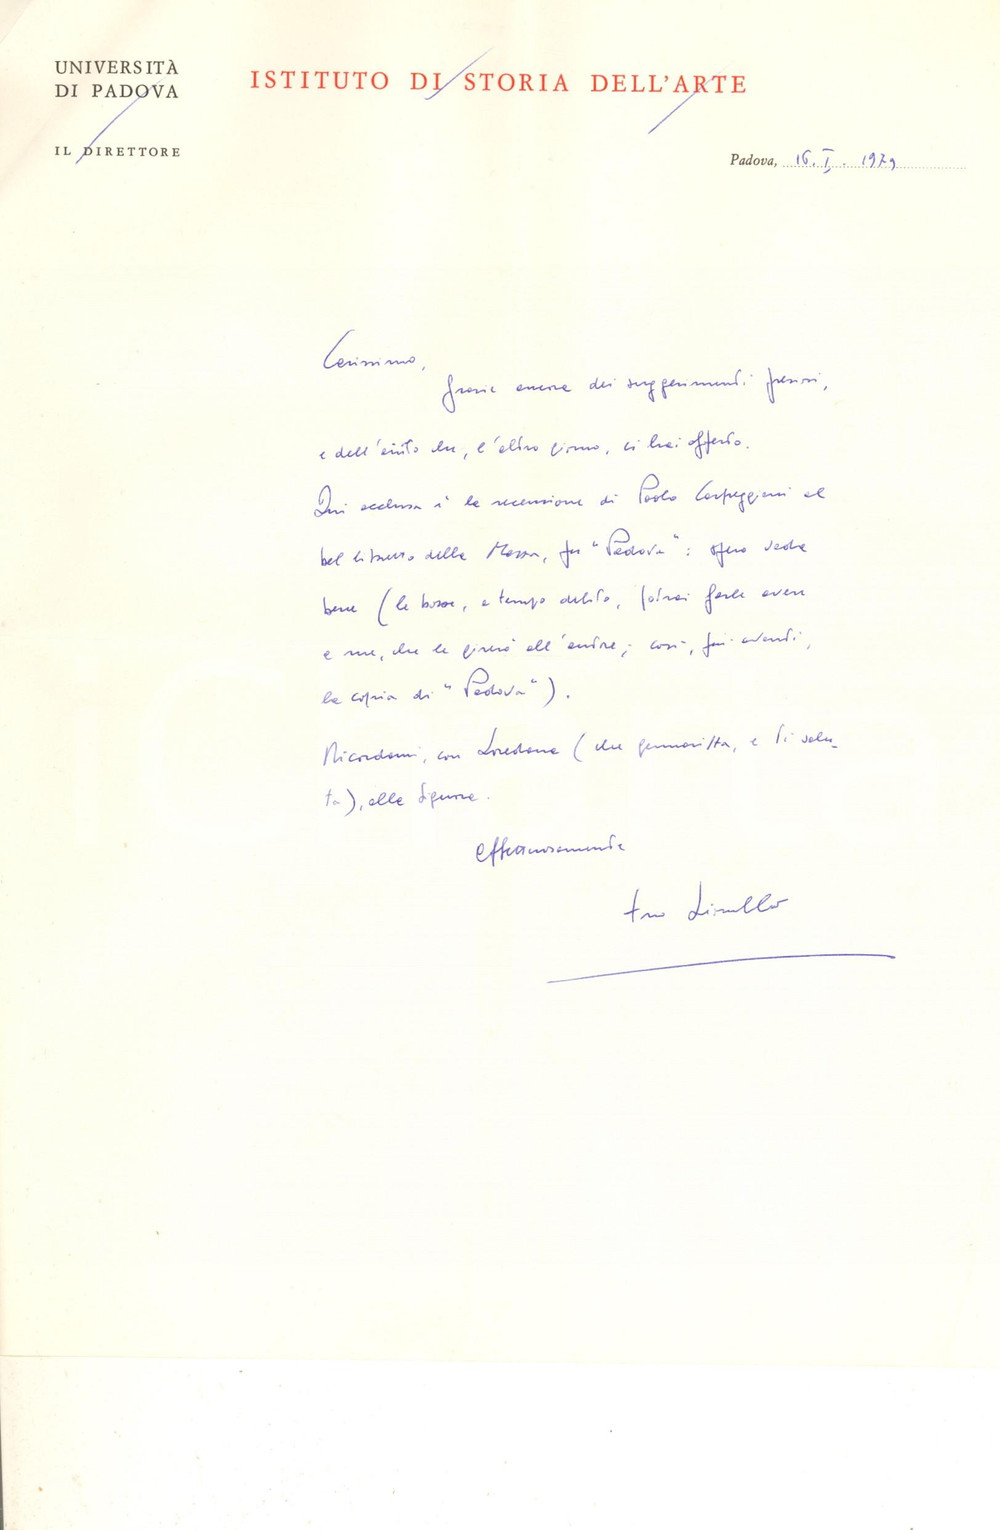 UNIVERSITÀ
DI PADOVA
ISTITUTO DI STORIA DELL'ARTE
IL DIRETTORE
Padova, 16. I. 1979
Carissimo,
grazie ancora dei suggerimenti preziosi,
e dell'aiuto che, l'altro giorno, ci hai offerto.
Qui acclusa è la recensione di Paolo Carpeggiani al
bel libretto della Massa, per "Padova": spero vada
bene (le bozze, a tempo debito, potrai farle avere
a me, che le girerò all'autore; così, più avanti,
la copia di "Padova").
Ricordami, con Loredana (che, e Ti salu-
ta), alla Signora.
Affettuosamente
tuo Lionello